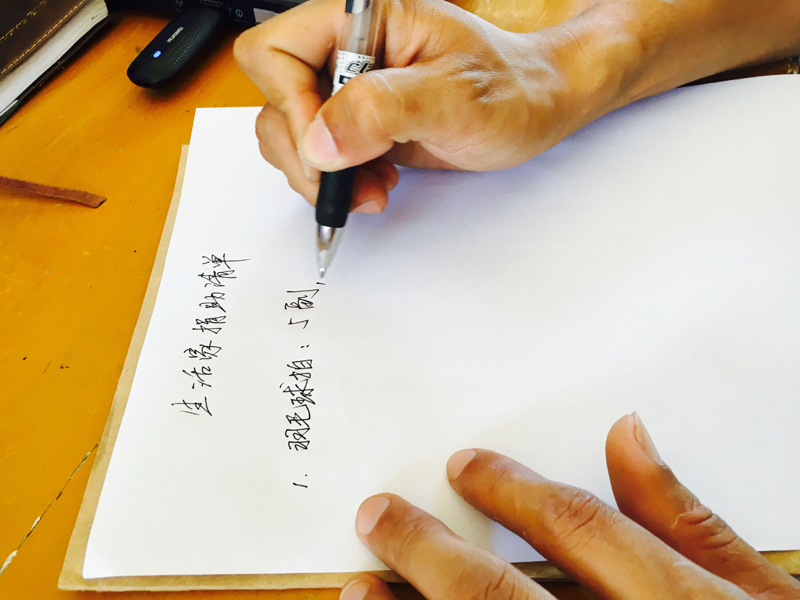 生活家捐助清单
1. 羽毛球拍：5副，
HUAWEI